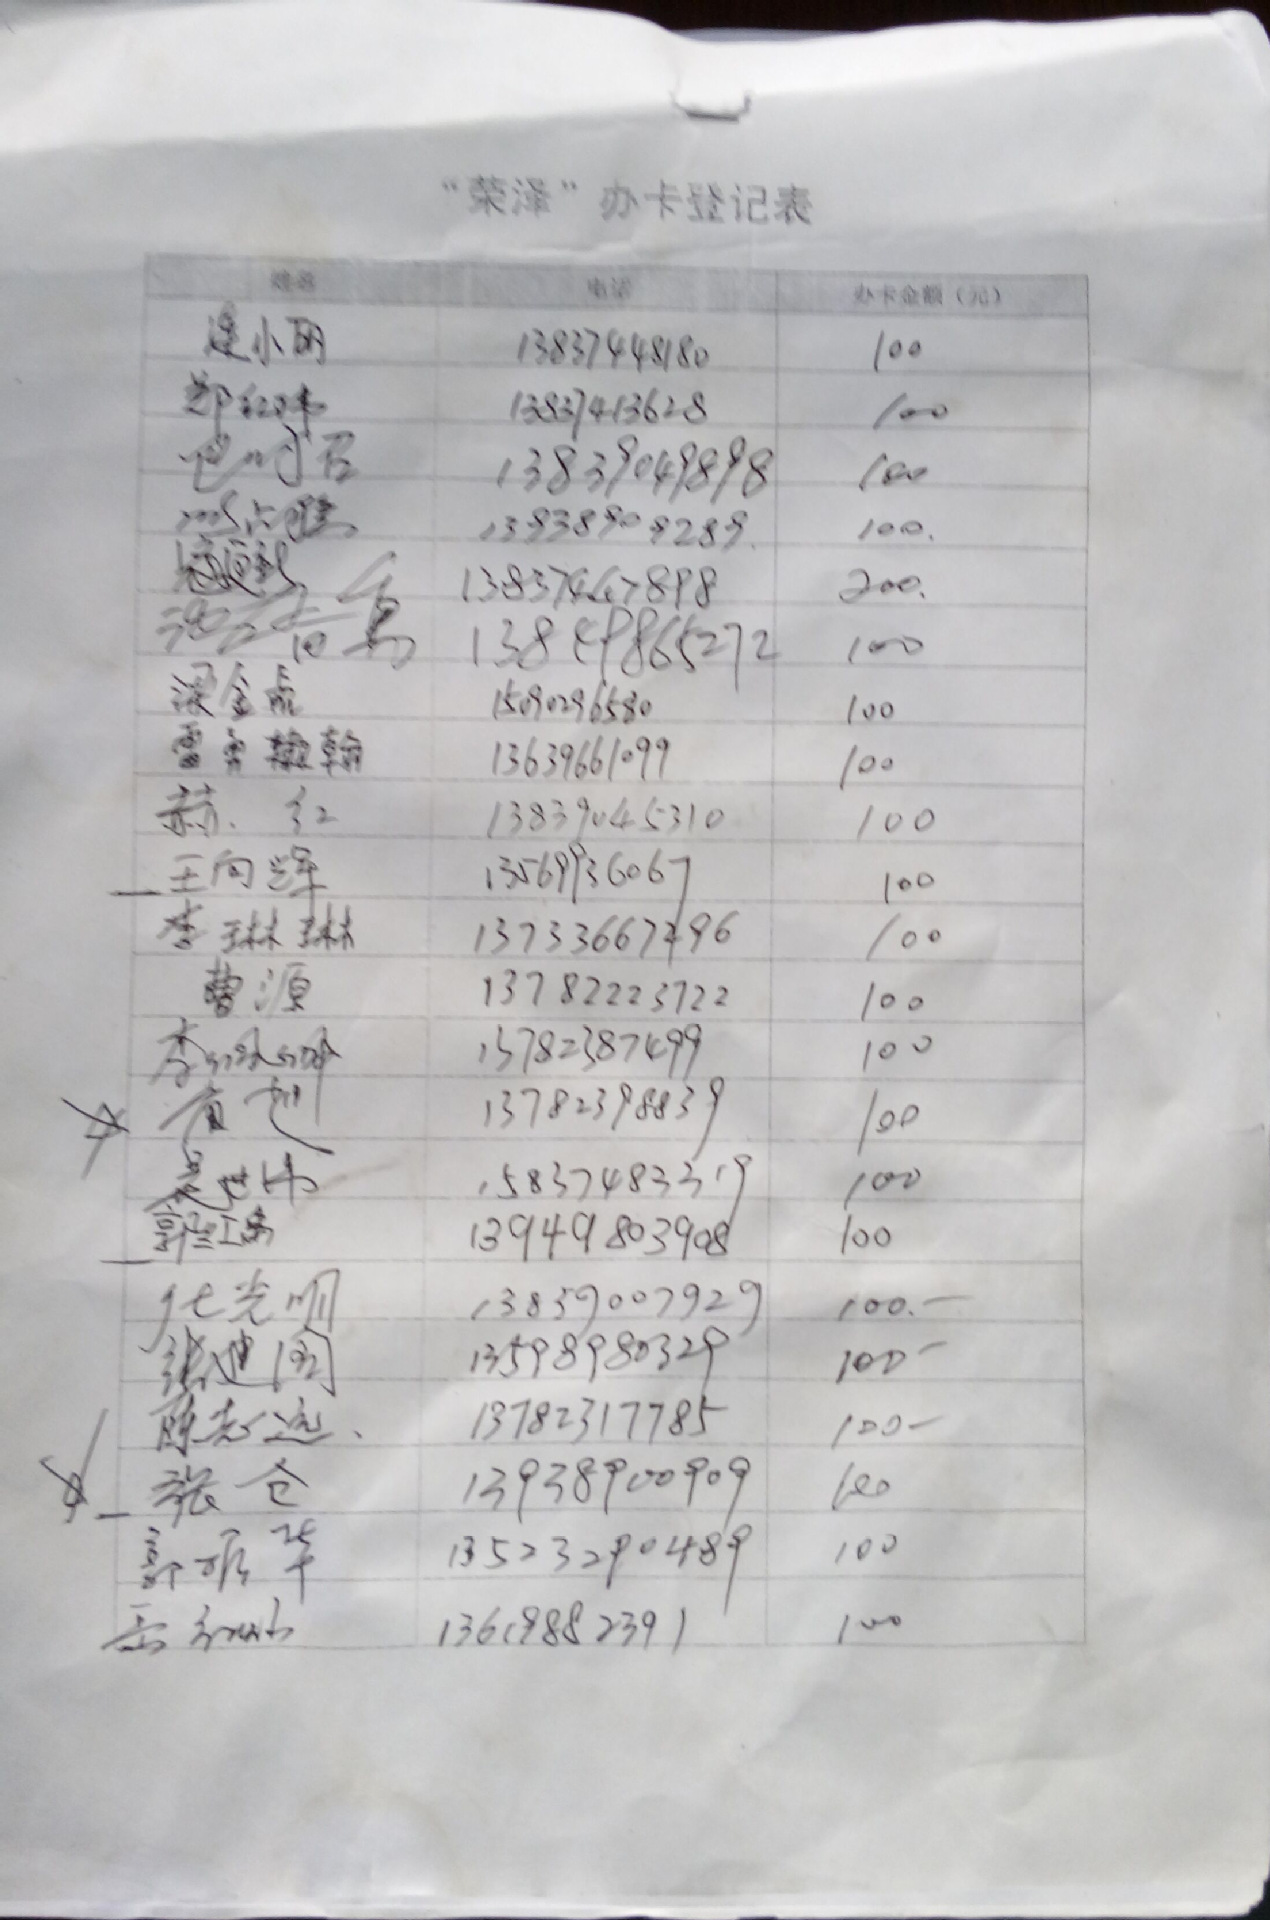 “荣泽”办卡登记表
姓名 电话 办卡金额（元）
小丽 13837448180 100
郑红伟 13837413628 100
13839049898 100
13938909289. 100.
13837467898 200.
13849865272 100
梁金虎 15090296580 100
雷 翰 13639661099 100
赫红 13839045310 100
王向辉 13569936067 100
李琳琳 13733667296 100
曹源 13782223722 100
李 13782387499 100
13782398839 100
15837483319 100
郭 13949803908 100
光明 13839007929 100.—
张建国 13598980329 100—
陈志远. 13782317785 100—
张仓 13938900909 100
郭 华 13523290489 100
13619882391 100